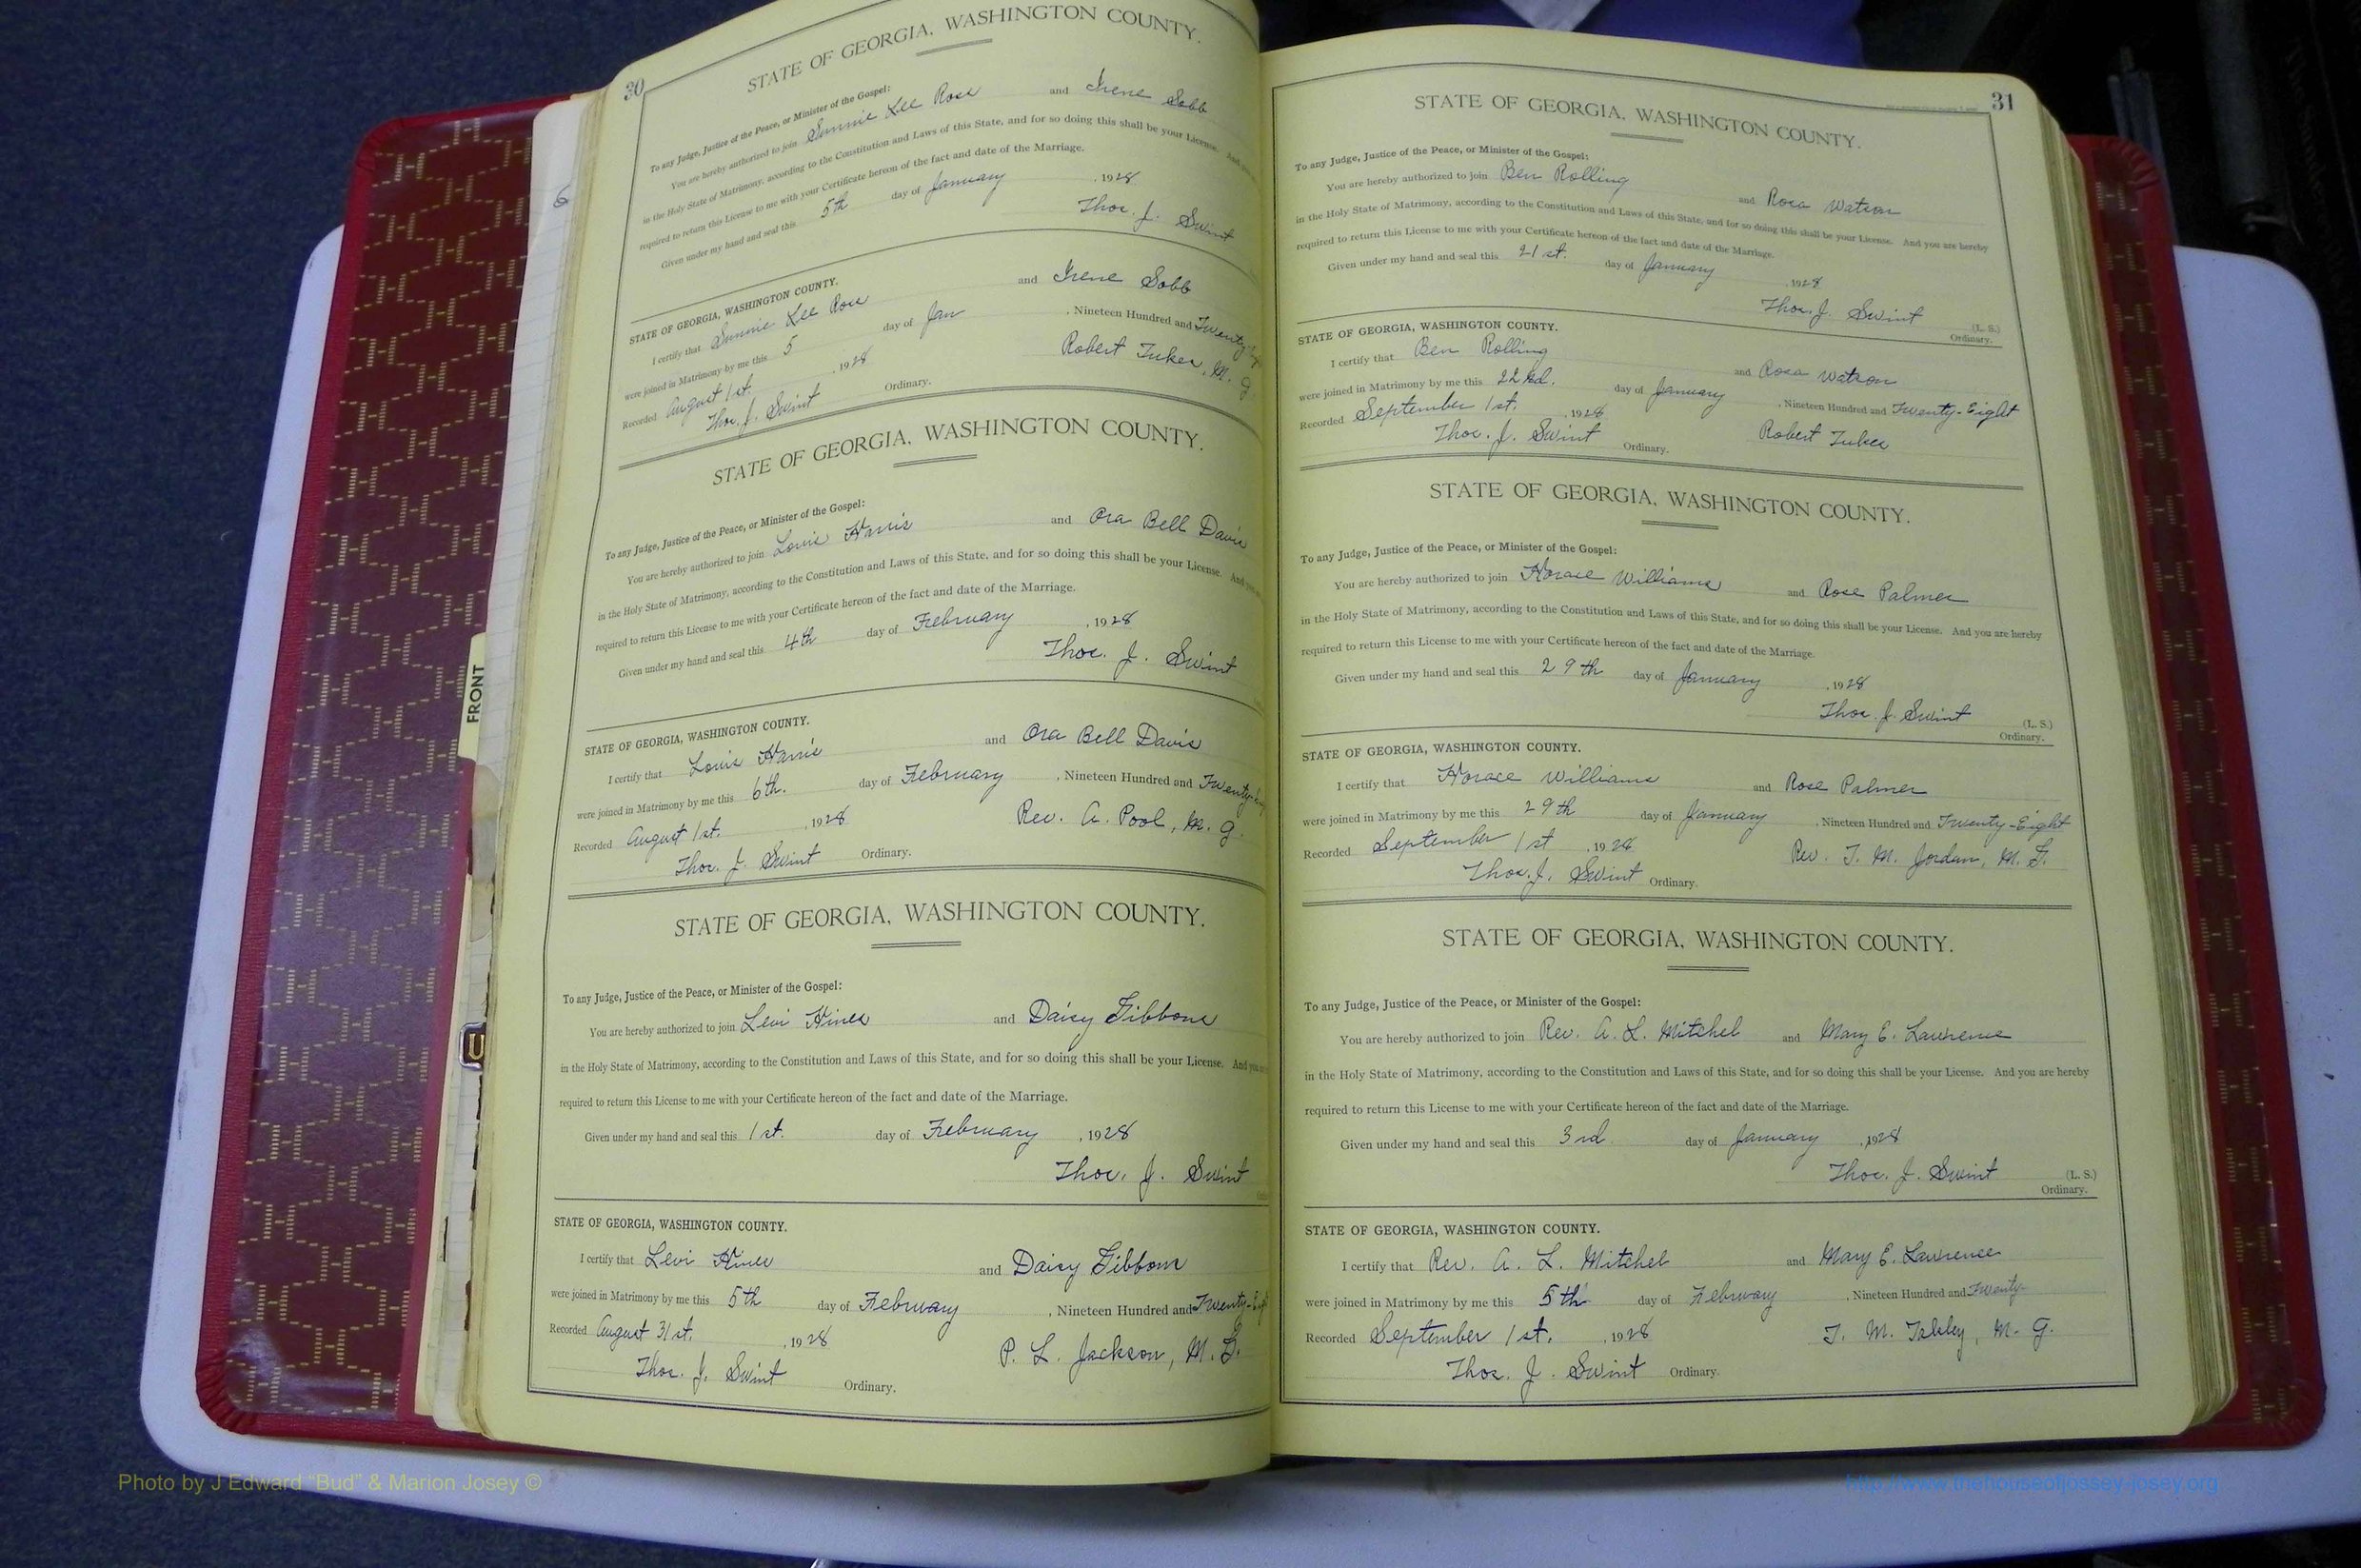 30
STATE OF GEORGIA, WASHINGTON COUNTY.
To any Judge, Justice of the Peace, or Minister of the Gospel:
You are hereby authorized to join Sunnie Lee Rose and Irene Sobb
in the Holy State of Matrimony, according to the Constitution and Laws of this State, and for so doing this shall be your License. And
required to return this License to me with your Certificate hereon of the fact and date of the Marriage.
Given under my hand and seal this 5th day of January, 1928
Thos. J. Swint
STATE OF GEORGIA, WASHINGTON COUNTY.
I certify that Sunnie Lee Rose and Irene Sobb
were joined in Matrimony by me this 5 day of Jan, Nineteen Hundred and Twenty-
Recorded August 1st. , 1928 Robert Tukes, M. G.
Thos. J. Swint Ordinary.
STATE OF GEORGIA, WASHINGTON COUNTY.
To any Judge, Justice of the Peace, or Minister of the Gospel:
You are hereby authorized to join Louis Harris and Ora Bell Davis
in the Holy State of Matrimony, according to the Constitution and Laws of this State, and for so doing this shall be your License. And
required to return this License to me with your Certificate hereon of the fact and date of the Marriage.
Given under my hand and seal this 4th day of February, 1928
Thos. J. Swint
STATE OF GEORGIA, WASHINGTON COUNTY.
I certify that Louis Harris and Ora Bell Davis
were joined in Matrimony by me this 6th. day of February, Nineteen Hundred and Twenty-
Recorded August 1st. , 1928 Rev. A. Pool, M. G.
Thos. J. Swint Ordinary.
STATE OF GEORGIA, WASHINGTON COUNTY.
To any Judge, Justice of the Peace, or Minister of the Gospel:
You are hereby authorized to join Levi Hines and Daisy Gibbons
in the Holy State of Matrimony, according to the Constitution and Laws of this State, and for so doing this shall be your License. And
required to return this License to me with your Certificate hereon of the fact and date of the Marriage.
Given under my hand and seal this 1st. day of February, 1928
Thos. J. Swint
STATE OF GEORGIA, WASHINGTON COUNTY.
I certify that Levi Hines and Daisy Gibbons
were joined in Matrimony by me this 5th day of February, Nineteen Hundred and Twenty-
Recorded August 31st. , 1928 P. L. Jackson, M. G.
Thos. J. Swint Ordinary.
31
STATE OF GEORGIA, WASHINGTON COUNTY.
To any Judge, Justice of the Peace, or Minister of the Gospel:
You are hereby authorized to join Ben Rolling and Rosa Watson
in the Holy State of Matrimony, according to the Constitution and Laws of this State, and for so doing this shall be your License. And you are hereby
required to return this License to me with your Certificate hereon of the fact and date of the Marriage.
Given under my hand and seal this 21st. day of January, 1928
Thos. J. Swint (L. S.)
Ordinary.
STATE OF GEORGIA, WASHINGTON COUNTY.
I certify that Ben Rolling and Rosa Watson
were joined in Matrimony by me this 22nd. day of January, Nineteen Hundred and Twenty-Eight
Recorded September 1st. , 1928 Robert Tukes
Thos. J. Swint Ordinary.
STATE OF GEORGIA, WASHINGTON COUNTY.
To any Judge, Justice of the Peace, or Minister of the Gospel:
You are hereby authorized to join Horace Williams and Rose Palmer
in the Holy State of Matrimony, according to the Constitution and Laws of this State, and for so doing this shall be your License. And you are hereby
required to return this License to me with your Certificate hereon of the fact and date of the Marriage.
Given under my hand and seal this 29th day of January, 1928
Thos. J. Swint (L. S.)
Ordinary.
STATE OF GEORGIA, WASHINGTON COUNTY.
I certify that Horace Williams and Rose Palmer
were joined in Matrimony by me this 29th day of January, Nineteen Hundred and Twenty-Eight
Recorded September 1st , 1928 Rev. T. M. Jordan, M. G.
Thos. J. Swint Ordinary.
STATE OF GEORGIA, WASHINGTON COUNTY.
To any Judge, Justice of the Peace, or Minister of the Gospel:
You are hereby authorized to join Rev. A. L. Mitchel and Mary E. Lawrence
in the Holy State of Matrimony, according to the Constitution and Laws of this State, and for so doing this shall be your License. And you are hereby
required to return this License to me with your Certificate hereon of the fact and date of the Marriage.
Given under my hand and seal this 3rd day of January, 1928
Thos. J. Swint (L. S.)
Ordinary.
STATE OF GEORGIA, WASHINGTON COUNTY.
I certify that Rev. A. L. Mitchel and Mary E. Lawrence
were joined in Matrimony by me this 5th day of February, Nineteen Hundred and Twenty-
Recorded September 1st. , 1928 T. M. M. G.
Thos. J. Swint Ordinary.
FRONT
Photo by J Edward "Bud" & Marion Josey ©
http://www.thehouseofjossey-josey.org